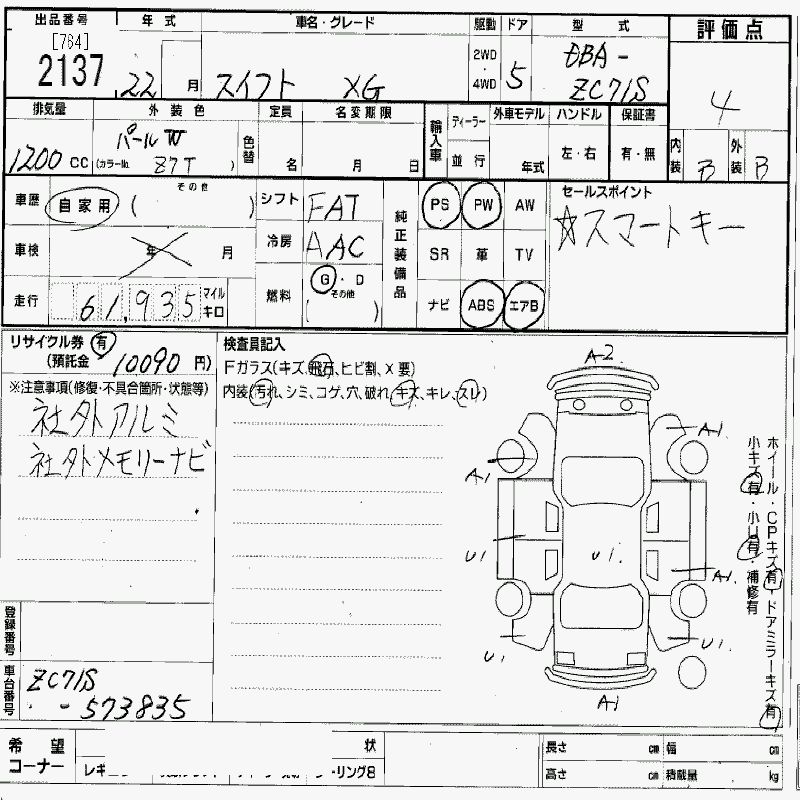 出品番号 年式 車名・グレード 駆動 ドア 型式 評価点
[764]
2137 22 月 スイフト XG 2WD・4WD 5 DBA-
ZC71S 4
排気量 外装色 定員 名変期限 輸入車 ディーラー 外車モデル ハンドル 保証書 内装 外装
1200 cc パールW (カラーNo. Z7T ) 色替 名 月 日 並行 年式 左・右 有・無 B B
車歴 自家用 ( その他 ) シフト FAT 純正装備品 PS PW AW セールスポイント
車検 年 月 冷房 AAC SR 革 TV ☆スマートキー
走行 61,935 マイル キロ 燃料 G・D その他 ( ) ナビ ABS エアB
リサイクル券 有
(預託金 10090 円)
※注意事項(修復・不具合箇所・状態等)
社外アルミ
社外メモリーナビ
検査員記入
Fガラス(キズ、飛石、ヒビ割、X要)
内装(汚れ、シミ、コゲ、穴、破れ、キズ、キレ、スレ)
A-2
A1
A1
U1
U1.
A1.
U1
U1
A1
ホイール・CPキズ有・ドアミラーキズ有
小キズ有・小U有・補修有
登録番号
車台番号 ZC71S
-573835
希望コーナー 状 長さ cm 幅 cm
レギ リング8 高さ cm 積載量 kg